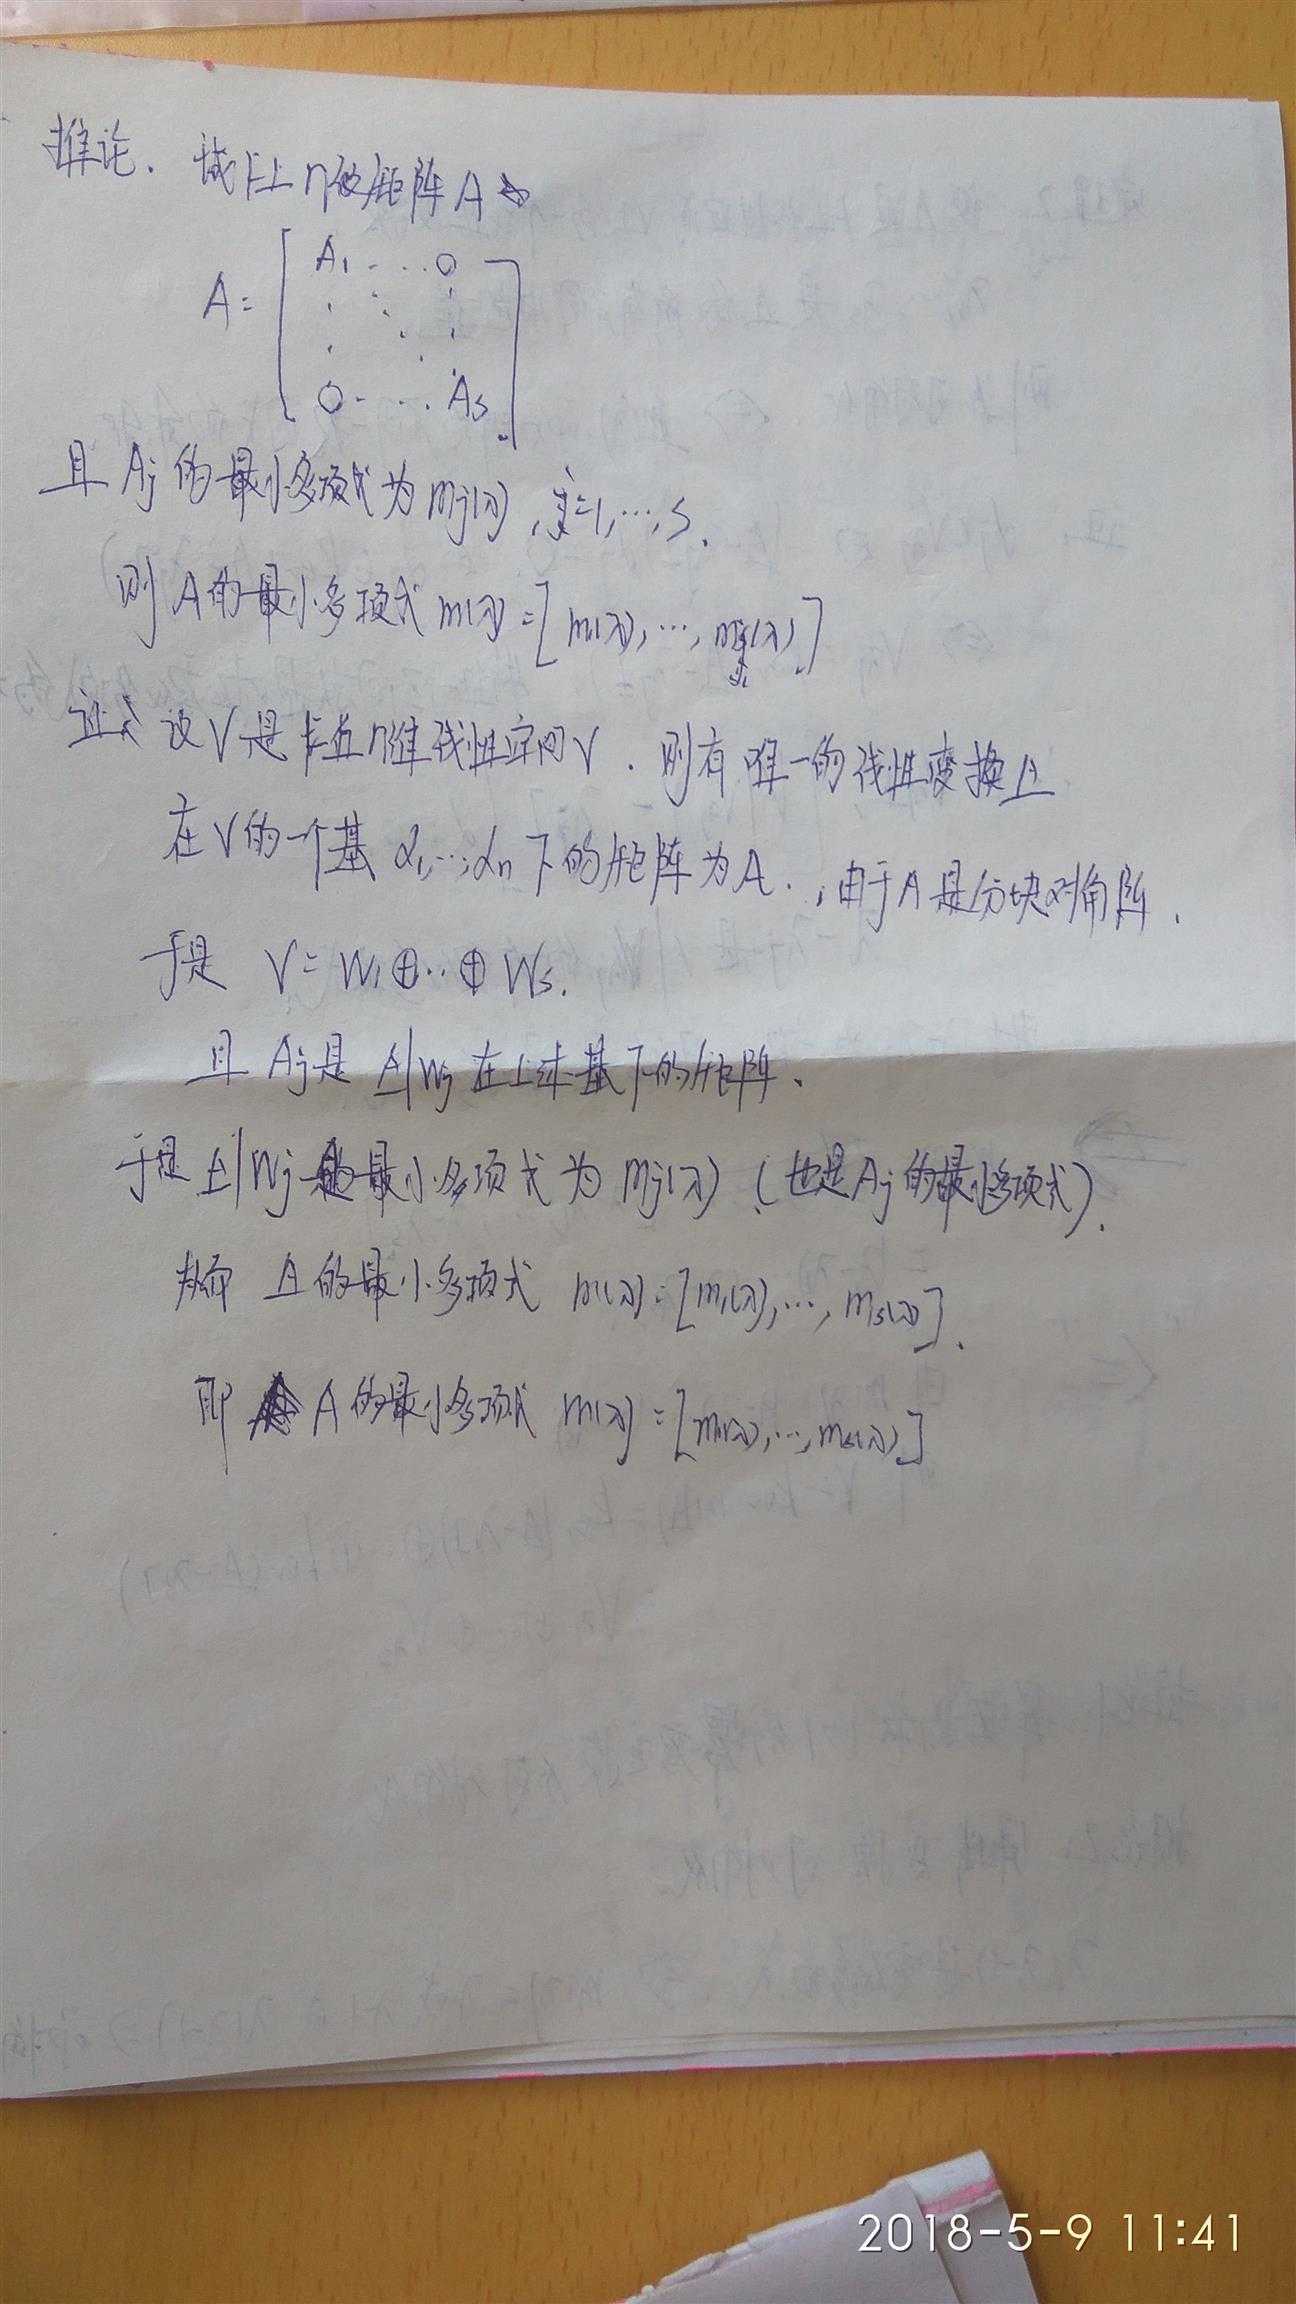 推论. 域F上n级矩阵A
A = [ A₁ ... 0
0 ... Aₛ ]
且 Aⱼ 的最小多项式为 mⱼ(λ), j=1, ..., s.
则 A的最小多项式 m(λ) = [m₁(λ), ..., mₛ(λ)]
证: 设V是F上n维线性空间V. 则有唯一的线性变换A
在V的一个基 α₁, ..., αₙ 下的矩阵为A. , 由于A是分块对角阵.
于是 V = W₁ ⊕ ... ⊕ Wₛ.
且 Aⱼ是 A|Wⱼ 在上述基下的矩阵.
于是 A|Wⱼ 的最小多项式为 mⱼ(λ) (也是Aⱼ的最小多项式).
从而 A的最小多项式 m(λ) = [m₁(λ), ..., mₛ(λ)].
即 A的最小多项式 m(λ) = [m₁(λ), ..., mₛ(λ)]
2018-5-9 11:41